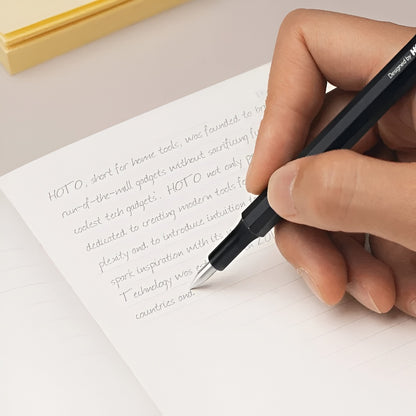 Designed by
HOTO, short for home tools, was founded to
run-of-the-mill gadgets without sacrificing
coolest tech gadgets. HOTO not only
dedicated to creating modern tools
plexity and to introduce intuition
spark inspiration with its
Technology was
countries and